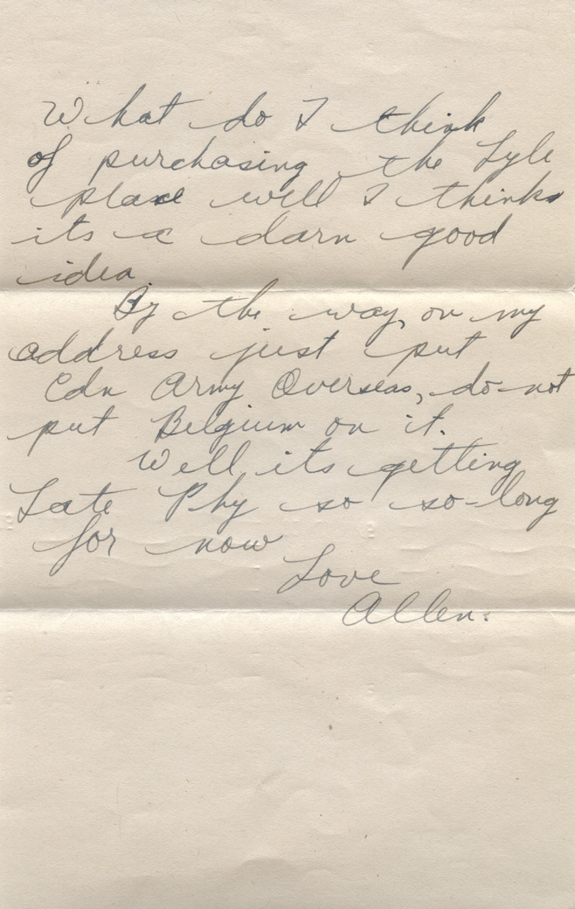 What do I think
of purchasing the Lyle
place well I thinks
its a darn good
idea.
By the way, on my
address just put
Cdn Army Overseas, do-not
put Belgium on it.
Well, its getting
Late Phy so so-long
for now
Love
Allen.